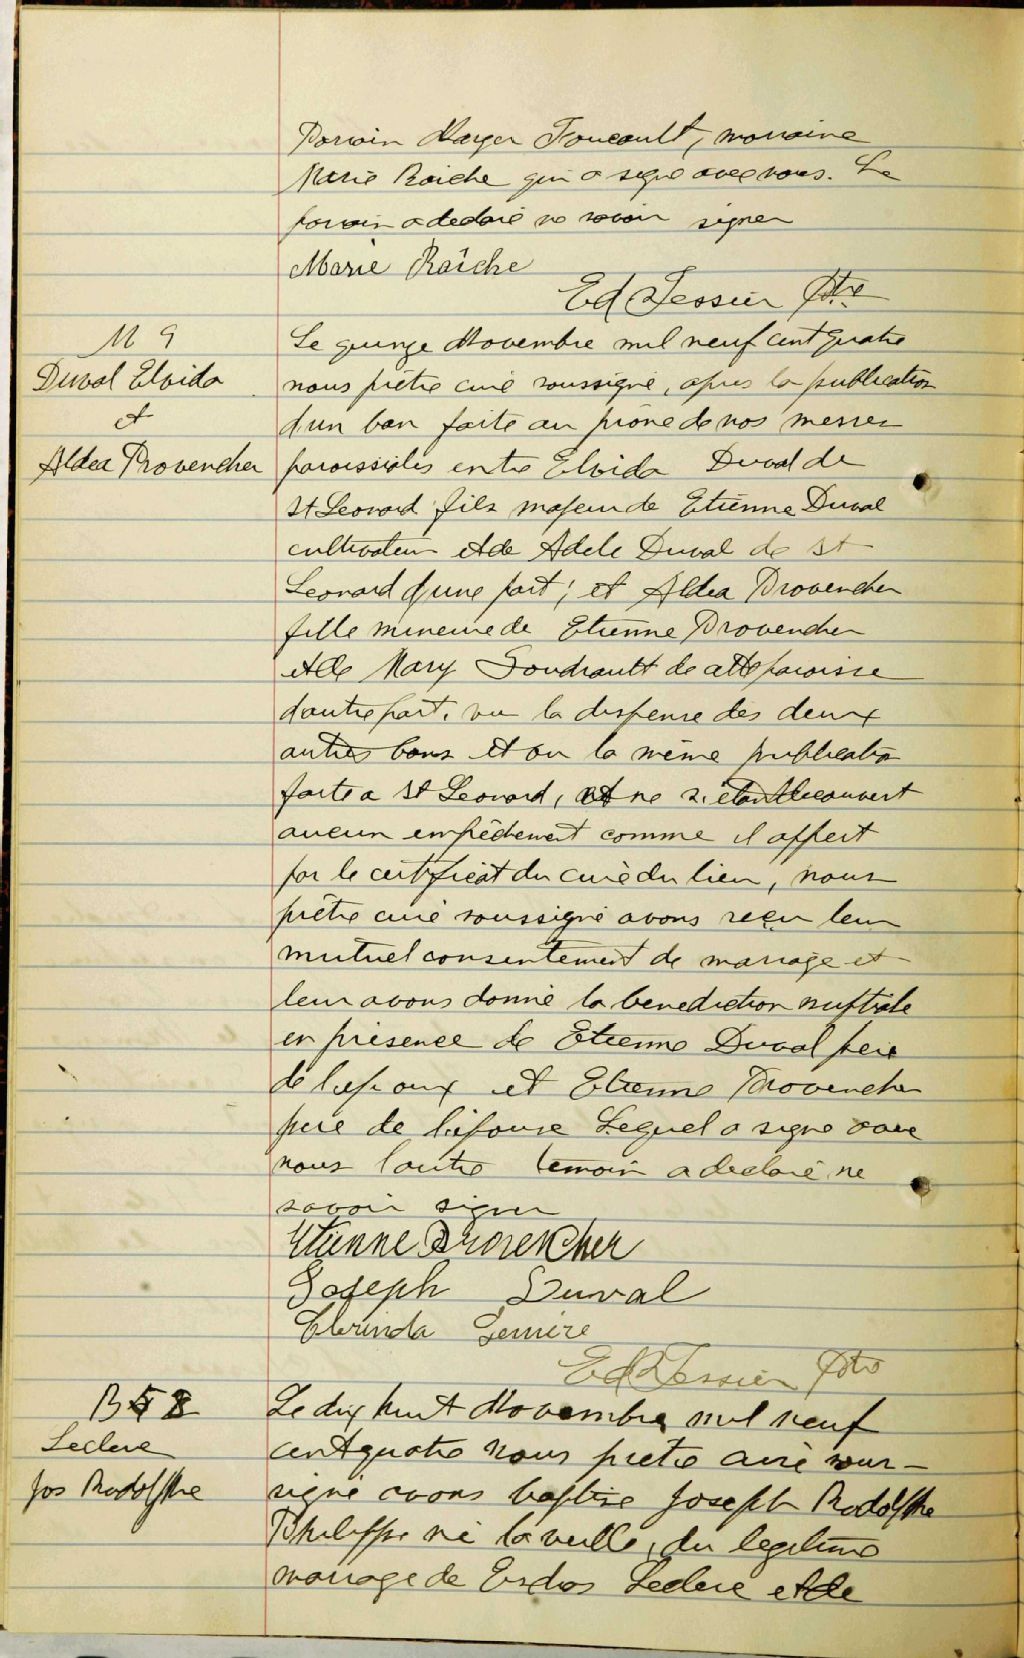 Parrain Foucault, marraine
Marie Raiche qui a signé avec nous. Le
parrain a declaré ne savoir signer
Marie Raîche
Ed Tessier Ptre
M 9
Duval Elvida
et
Aldea Provencher
Le quinze Novembre mil neuf cent quatre
nous prêtre curé soussigné, apres la publication
d'un ban faite au prône de nos messes
paroissiales entre Elvida Duval de
St Leonard fils majeur de Etienne Duval
cultivateur et de Adele Duval de St
Leonard d'une part; et Aldea Provencher
fille mineure de Etienne Provencher
et de Mary Goudrault de cette paroisse
d'autre part, vu la dispense des deux
autres bans et vu la même publication
faite a St Leonard, et ne s'étant decouvert
aucun empêchement comme il appert
par le certificat du curé du lieu, nous
prêtre curé soussigné avons reçu leur
mutuel consentement de mariage et
leur avons donné la benediction nuptiale
en présence de Etienne Duval pere
de l'epoux et Etienne Provencher
pere de l'épouse Lequel a signé avec
nous l'autre temoin a declaré ne
savoir signer
Etienne Provencher
Joseph Duval
Clarinda Lemire
Ed Tessier Ptre
B 58
Leclerc
Jos Rodolphe
Le dix huit Novembre mil neuf
cent quatre nous pretre curé sous-
signé avons baptise Joseph Rodolphe
Philippe né la veille, du legitime
mariage de Leclerc et de